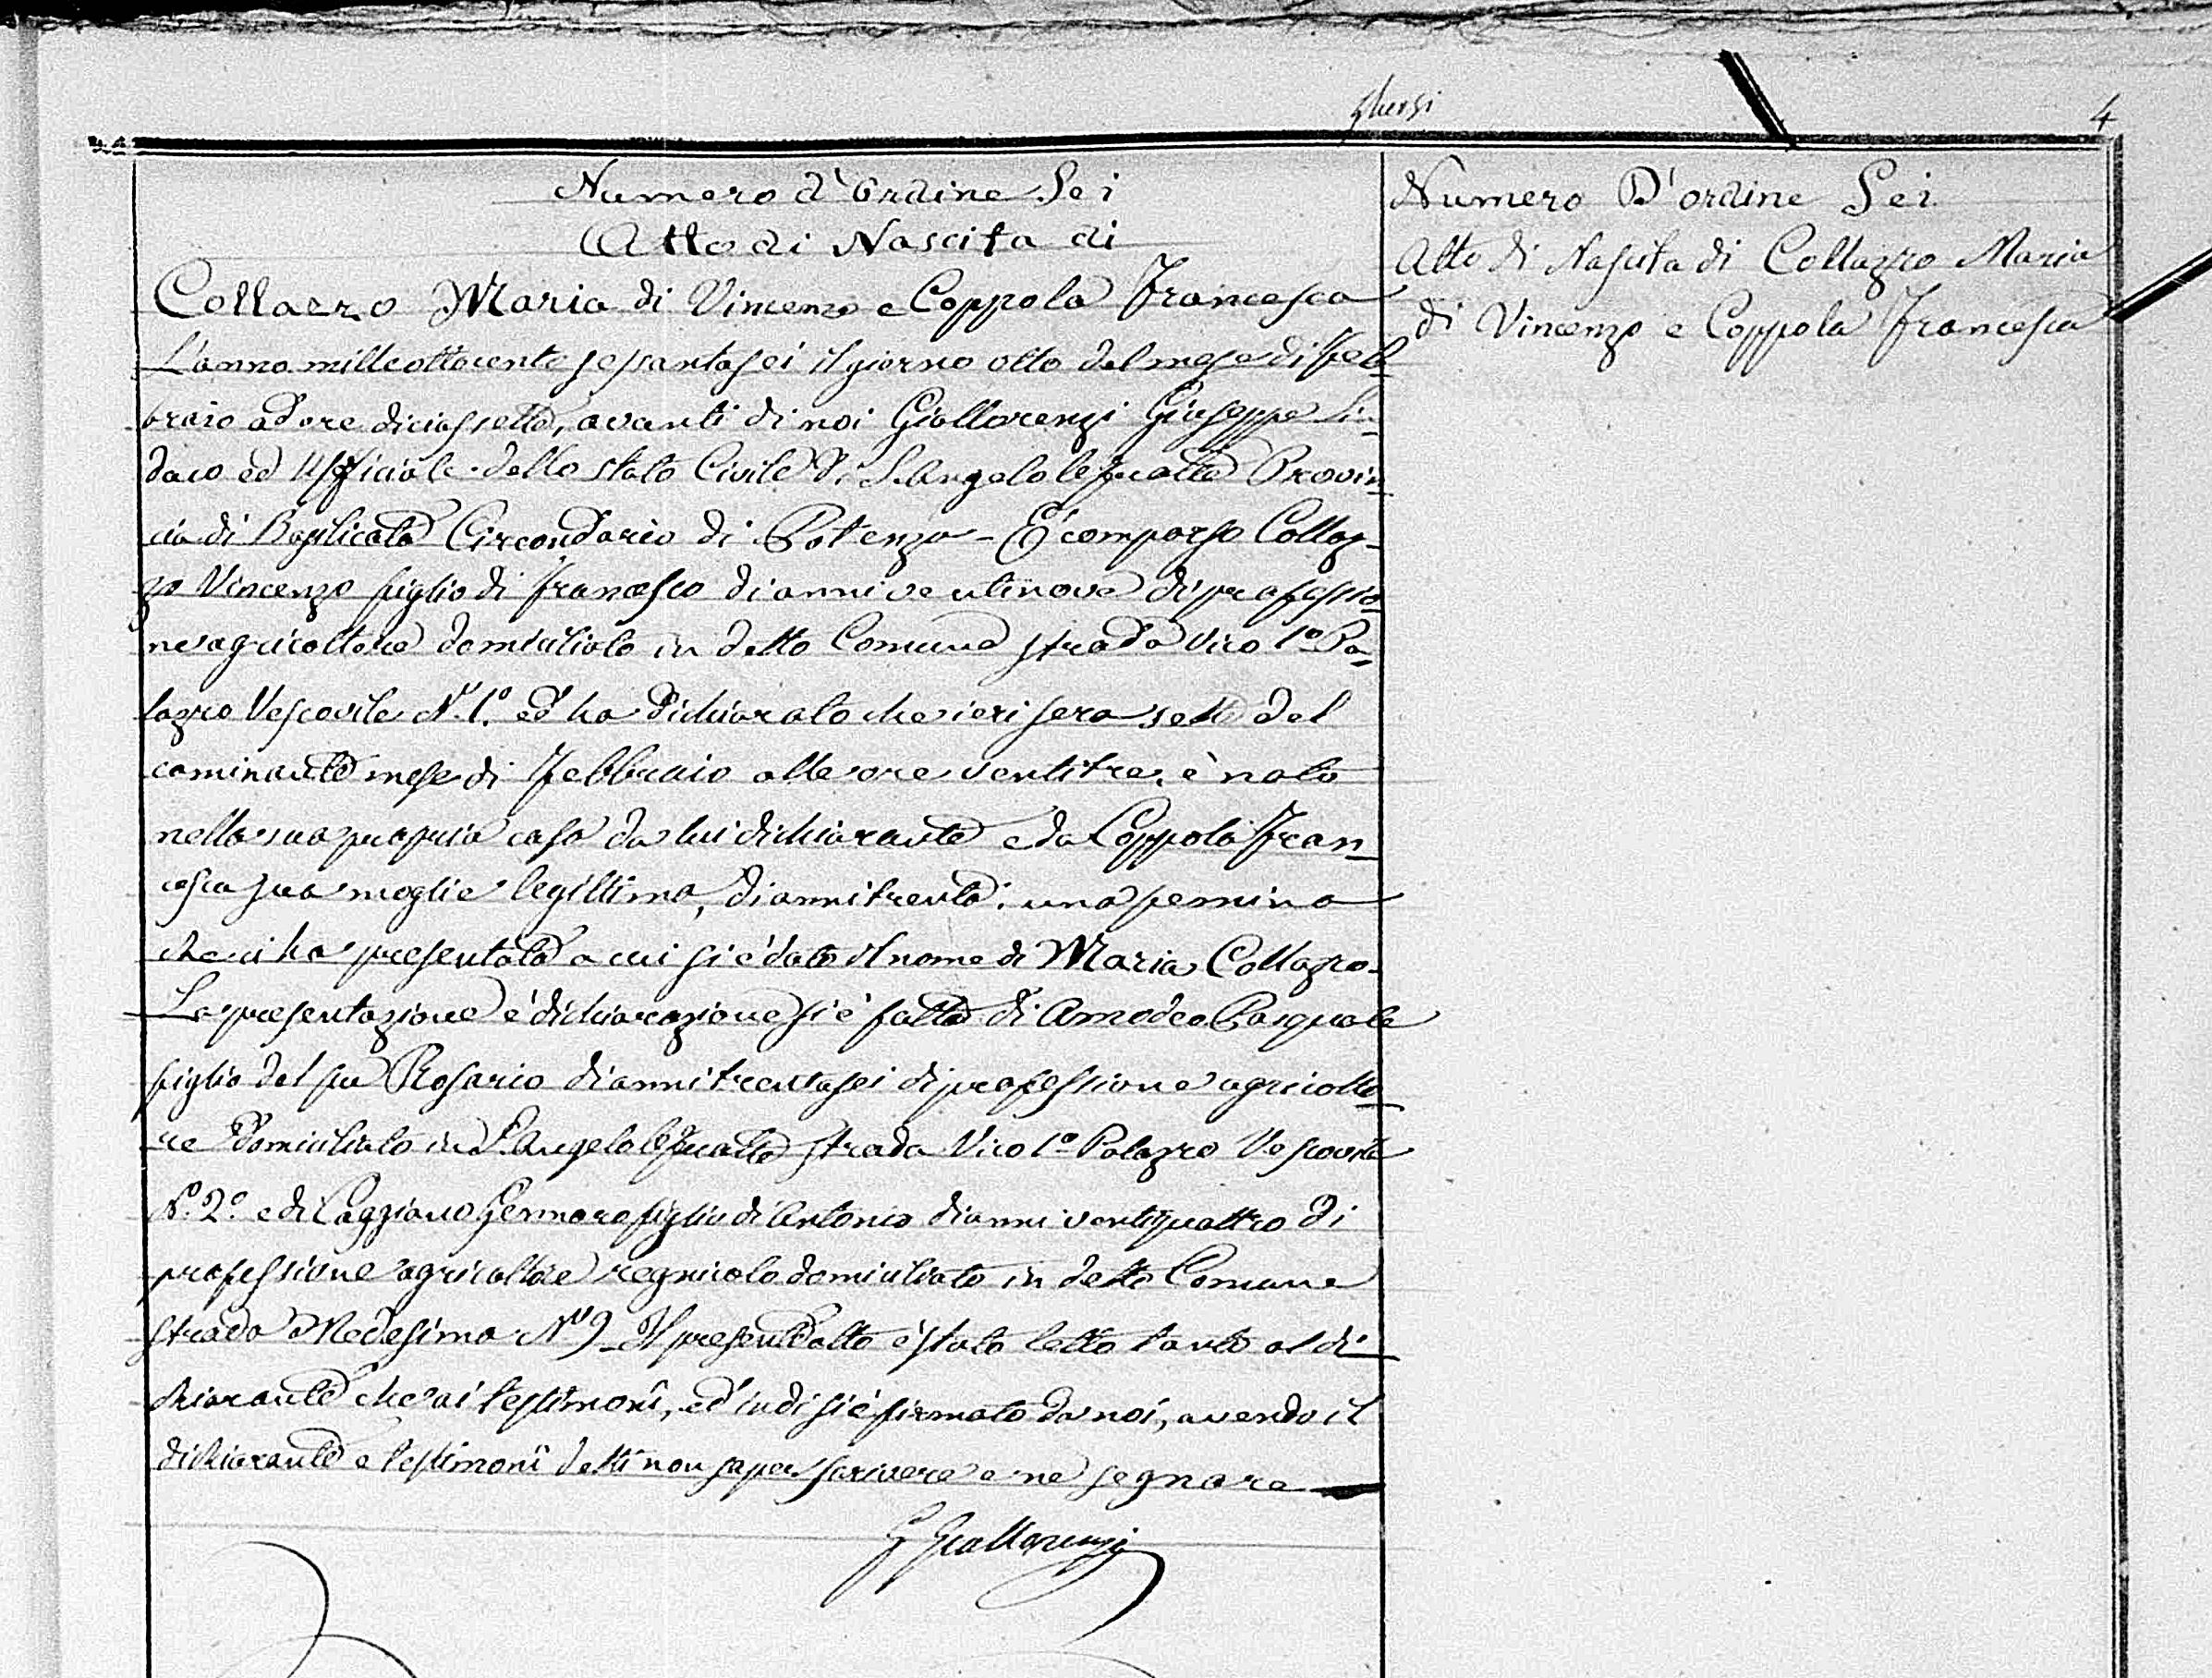 4
Numero d'ordine Sei
Atto di Nascita di
Collazzo Maria di Vincenzo e Coppola Francesca
L'anno milleottocento sessantasei il giorno otto del mese di Feb
braio ad ore diciassette, avanti di noi Giallorenzi Giuseppe Sin
daco ed Ufficiale dello Stato Civile di S. Angelo le Fratte Provin
cia di Basilicata Circondario di Potenza - È comparso Collaz
zo Vincenzo figlio di Francesco di anni ventinove di professio
ne agricoltore domiciliato in detto Comune strada Vico 1º Pa
lazzo Vescovile Nº 1º ed ha dichiarato che ieri sera sette del
cominante mese di Febbraio alle ore ventitre, è nato
nella sua propria casa da lui dichiarante e da Coppola Fran
cesca sua moglie legittima, di anni trenta: una femina
che ci ha presentata a cui si è dato il nome di Maria Collazzo.
La presentazione e dichiarazione si è fatta di Amodeo Pasquale
figlio del fu Rosario di anni trentasei di professione agricolto
re domiciliato in S. Angelo le Fratte strada Vico 1º Palazzo Vescovile
Nº 2º e di Caggiano Gennaro figlio di Antonio di anni ventiquattro di
professione agricoltore regnicolo domiciliato in detto Comune
strada Medesima Nº 9 - Il presente atto è stato letto tanto al di
chiarante che ai testimonî, ed indi si è firmato da noi, avendo il
dichiarante e testimonii detti non saper scrivere e ne segnare
G Giallorenzi
Numero D'ordine Sei
Atto di Nascita di Collazzo Maria
di Vincenzo e Coppola Francesca